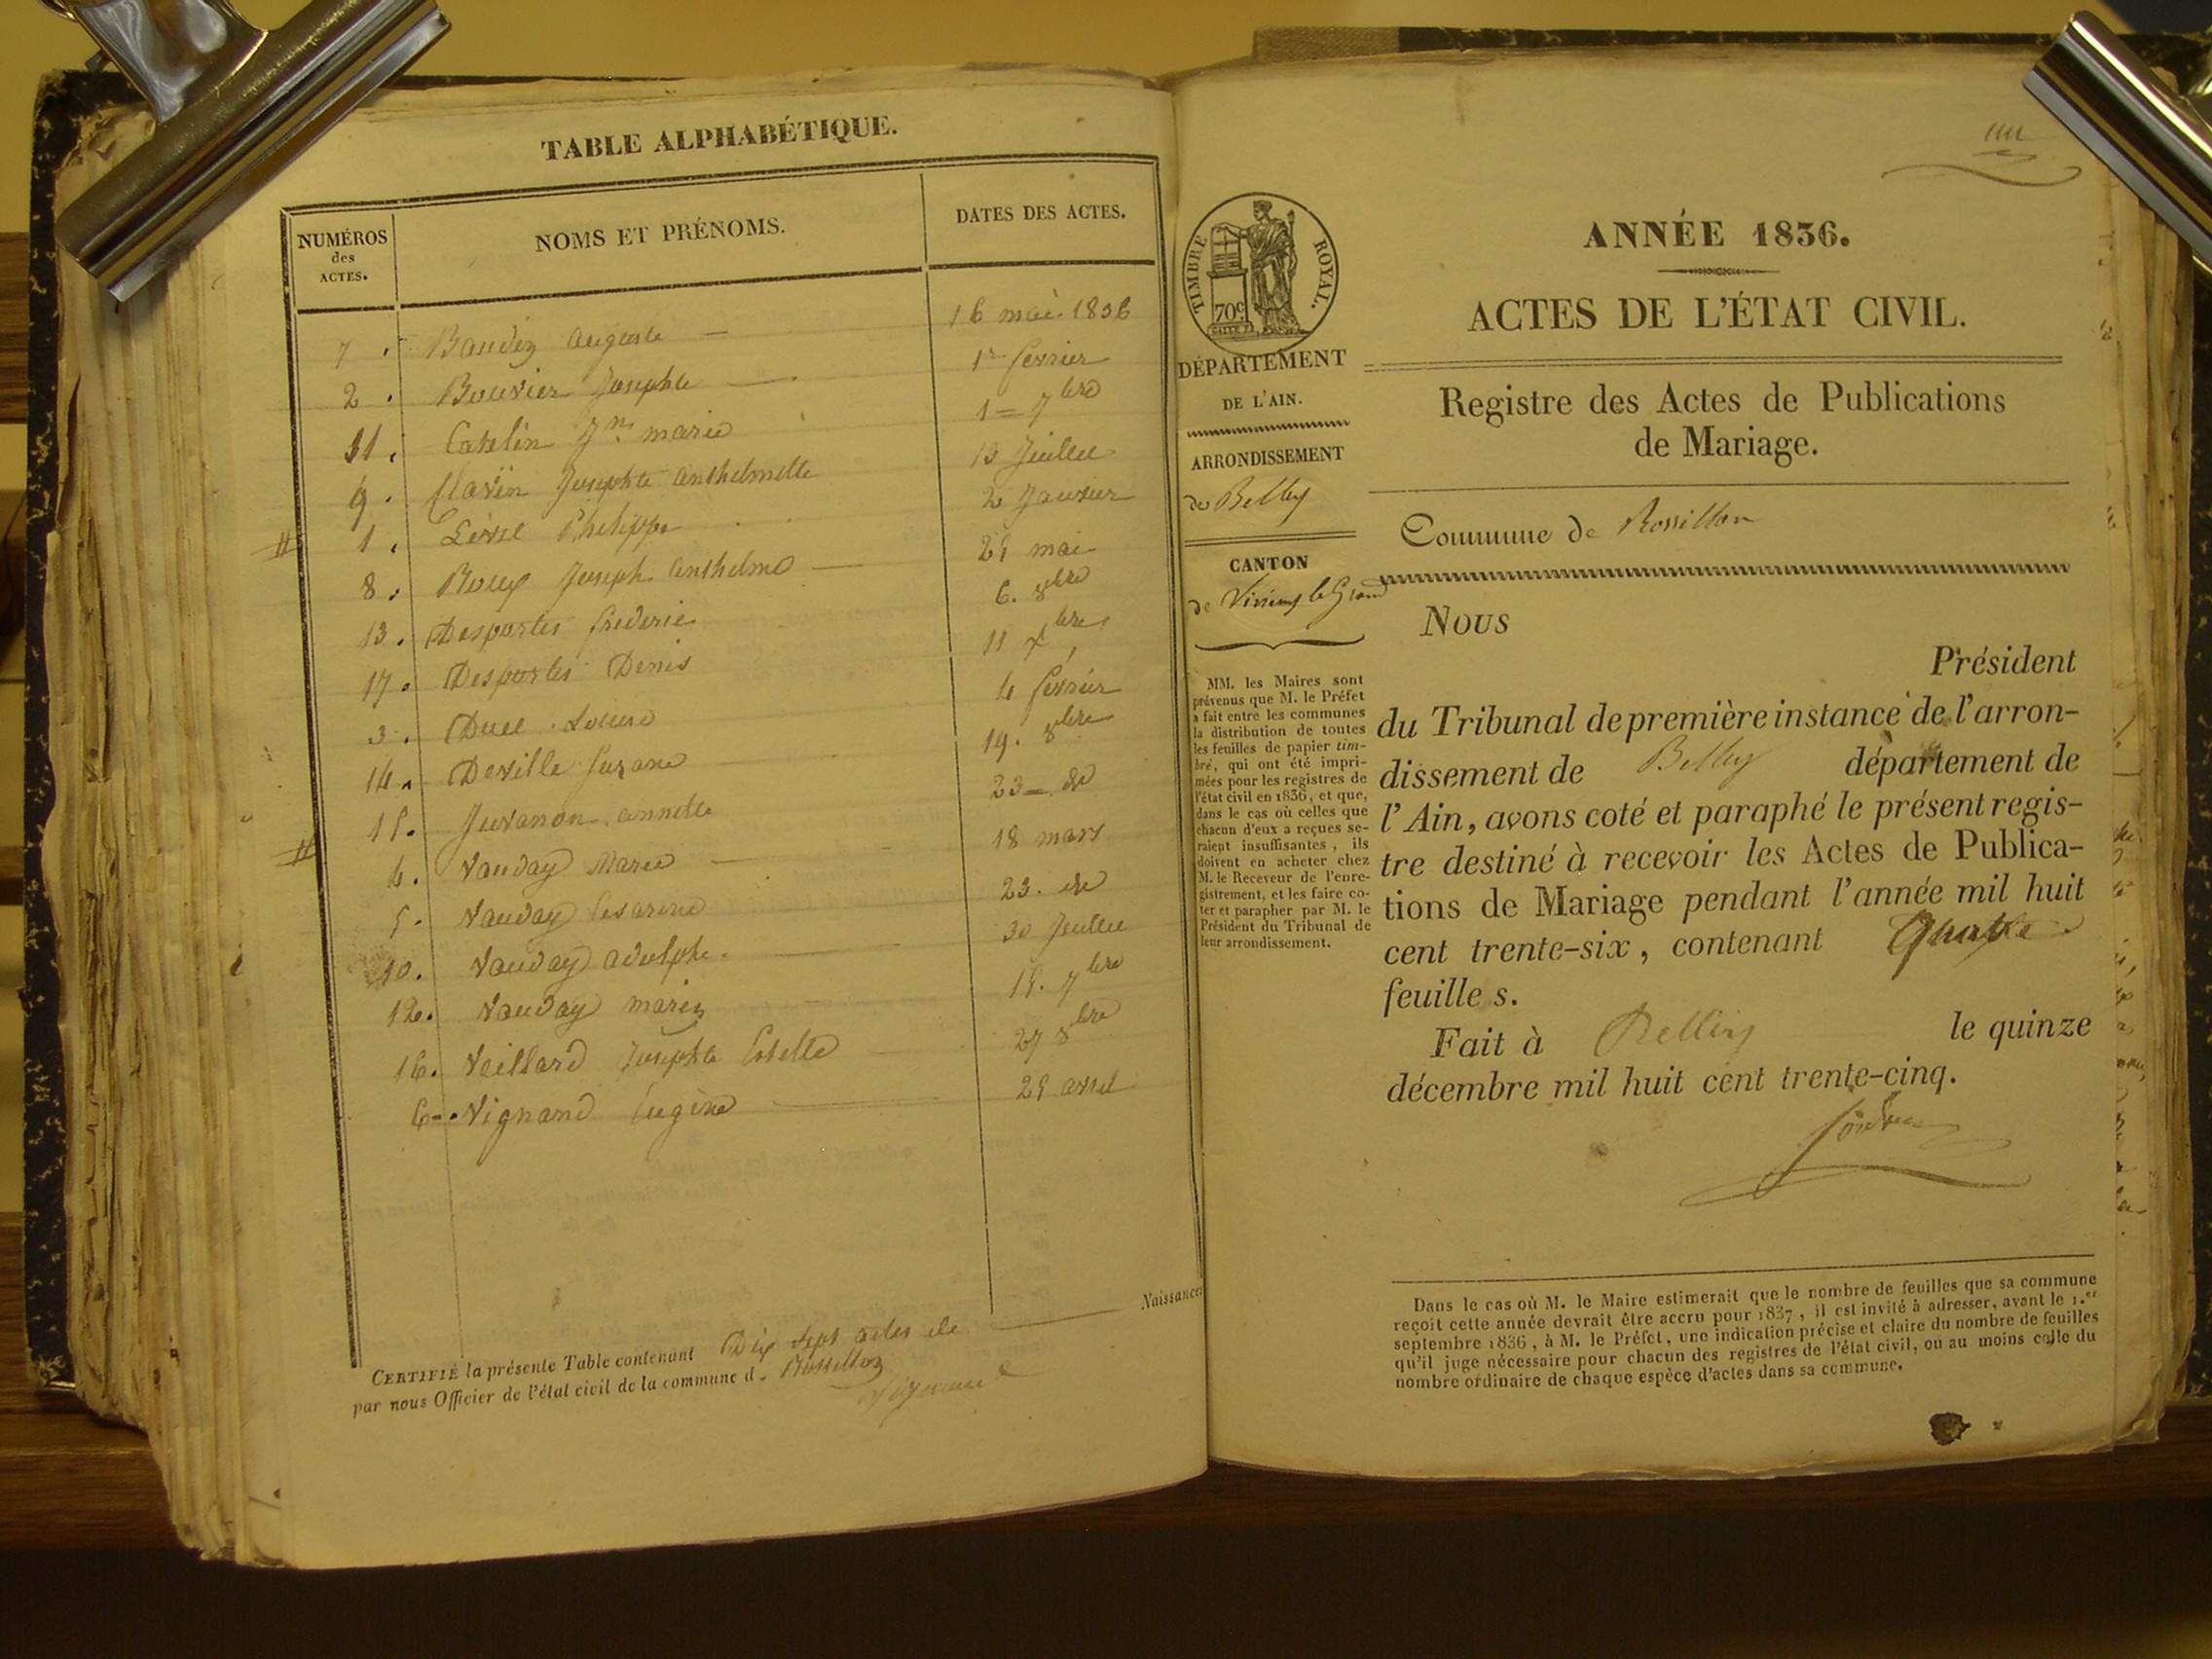 TABLE ALPHABÉTIQUE.
NUMÉROS
des
ACTES.
NOMS ET PRÉNOMS.
DATES DES ACTES.
7 . Baudin Auguste — 16 mai 1836
2 . Bouvier Josephte — 1er fevrier
11 . Catelin Jne marie 1 = 7bre
9 . Clavin Josephte Anthelmette 13 Juillet
1 . Philippe 2 Janvier
8 . Roux Joseph Anthelme — 21 mai
13 . Desportes frederic 6. 8bre
17 . Desportes Denis 11 xbre
3 . Duce Louise 4 fevrier
14 . Deville Suzane 19. 8bre
15. Juvanon annette 23 — de
4 . Vauday Marie — 18 mars
5 . Vauday Cesarine 23. de
10. Vauday adolphe. 30 Juillet
12. Vauday marie 15. 7bre
16. Veillard Josephte Estelle 27 8bre
6 — . Vignand Eugène 25 avril
CERTIFIÉ la présente Table contenant Dix sept actes de — Naissances
par nous Officier de l'état civil de la commune d. Rossillon
Vignand
un
TIMBRE ROYAL.
70c
DÉPARTEMENT
DE L'AIN.
ARRONDISSEMENT
de Belley
CANTON
de Virieux le Grand
MM. les Maires sont
prévenus que M. le Préfet
a fait entre les communes
la distribution de toutes
les feuilles de papier tim-
bré, qui ont été impri-
mées pour les registres de
l'état civil en 1836, et que,
dans le cas où celles que
chacun d'eux a reçues se-
raient insuffisantes, ils
doivent en acheter chez
M. le Receveur de l'enre-
gistrement, et les faire co-
ter et parapher par M. le
Président du Tribunal de
leur arrondissement.
ANNÉE 1836.
ACTES DE L'ÉTAT CIVIL.
Registre des Actes de Publications
de Mariage.
Commune de Rossillon
Nous
Président
du Tribunal de première instance de l'arron-
dissement de Belley département de
l'Ain, avons coté et paraphé le présent regis-
tre destiné à recevoir les Actes de Publica-
tions de Mariage pendant l'année mil huit
cent trente-six, contenant Quatre
feuille s.
Fait à Belley le quinze
décembre mil huit cent trente-cinq.
Dans le cas où M. le Maire estimerait que le nombre de feuilles que sa commune
reçoit cette année devrait être accru pour 1837, il est invité à adresser, avant le 1.er
septembre 1836, à M. le Préfet, une indication précise et claire du nombre de feuilles
qu'il juge nécessaire pour chacun des registres de l'état civil, ou au moins celle du
nombre ordinaire de chaque espèce d'actes dans sa commune.